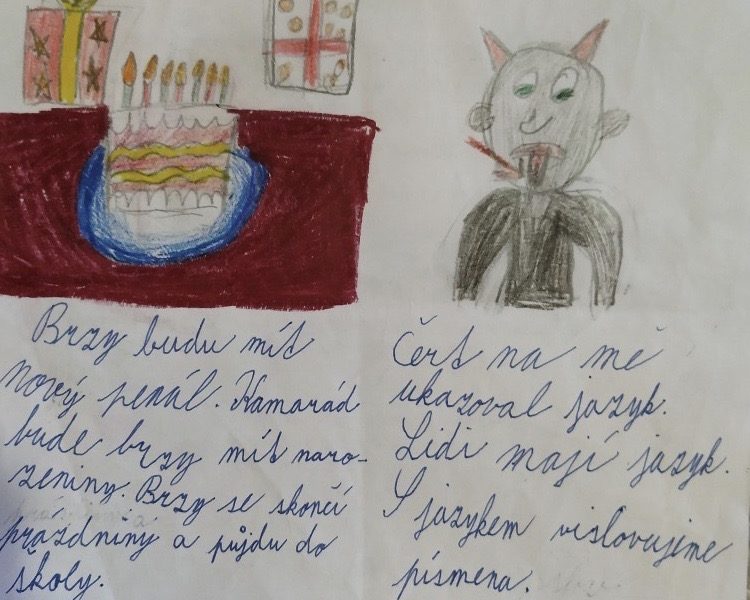 Brzy budu mít
nový penál. Kamarád
bude brzy mít naro-
zeniny. Brzy se skončí
prázdniný a půjdu do
školy.
Čert na mě
ukazoval jazyk.
Lidi mají jazyk.
S jazykem vislovujeme
písmena.